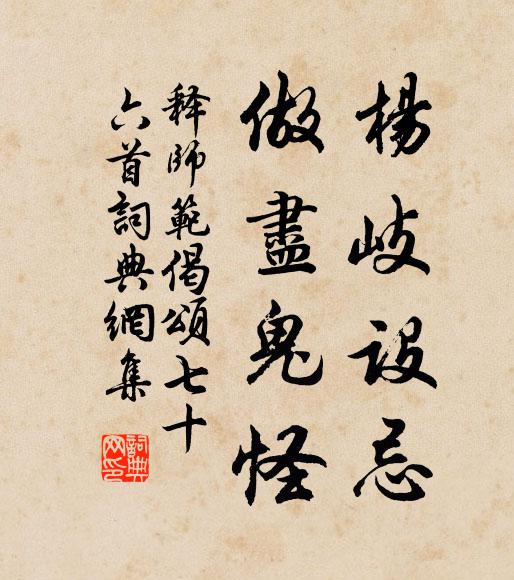 楊岐設忌
做盡鬼怪
释師範偈頌七十
六首詞典網集
詞典网印